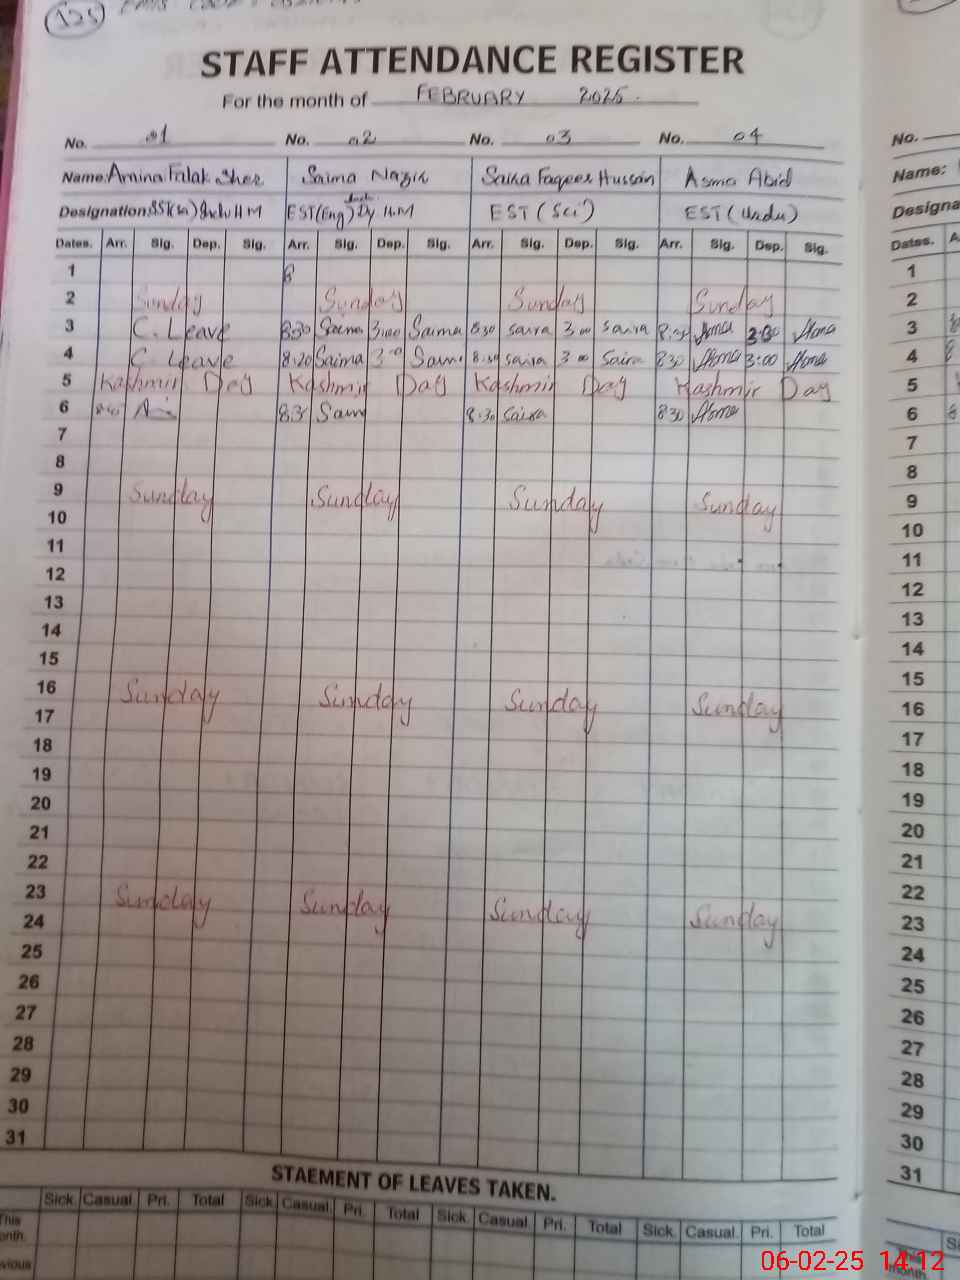 125
STAFF ATTENDANCE REGISTER
For the month of FEBRUARY 2025.
No. 01 No. 02 No. 03 No. 04
Name: Amina Falak Sher Saima Nazir Saira Faqeer Hussain Asma Abid
Designation: SST(Sci) HM EST(Eng) Dy H.M EST (Sci) EST (Urdu)
Dates. Arr. Sig. Dep. Sig. Arr. Sig. Dep. Sig. Arr. Sig. Dep. Sig. Arr. Sig. Dep. Sig.
1 8
2 Sunday Sunday Sunday Sunday
3 C. Leave 8:30 Saima 3:00 Saima 8:30 Saira 3:00 Saira 8:30 Asma 3:00 Asma
4 C. Leave 8:20 Saima 3:00 Saima 8:30 Saira 3:00 Saira 8:30 Asma 3:00 Asma
5 Kashmir Day Kashmir Day Kashmir Day Kashmir Day
6 8:3 Saim 8:30 Saira 8:30 Asma
7
8
9 Sunday Sunday Sunday Sunday
10
11
12
13
14
15
16 Sunday Sunday Sunday Sunday
17
18
19
20
21
22
23 Sunday Sunday Sunday Sunday
24
25
26
27
28
29
30
31
STAEMENT OF LEAVES TAKEN.
Sick. Casual. Pri. Total Sick. Casual. Pri. Total Sick. Casual. Pri. Total Sick. Casual. Pri. Total
This
onth.
vious
No.
Name:
Designa
Dates. A
1
2
3
4
5
6
7
8
9
10
11
12
13
14
15
16
17
18
19
20
21
22
23
24
25
26
27
28
29
30
31
This
month
06-02-25 14:12